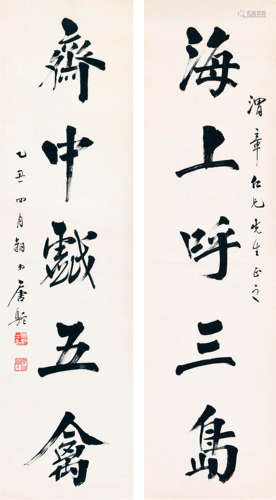 海上呼三島
渭章仁兄先生正之
齋中戲五禽
乙丑四月朔日唐駝